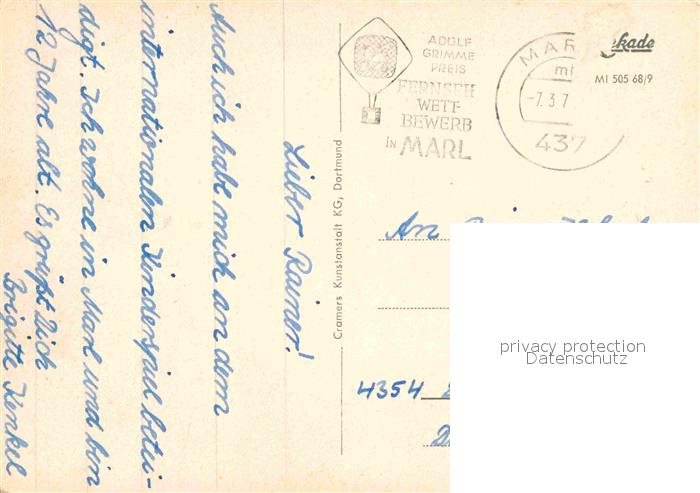 Lieber Rainer!
Auch ich habe mich an dem
internationalen Kinderspiel betei-
digt. Ich wohne in Marl und bin
12 Jahre alt. Es grüßt Dich
Brigitte Henkel
Cramers Kunstanstalt KG, Dortmund
ADOLF
GRIMME
PREIS
FERNSEH
WETT-
BEWERB
IN MARL
MAR
-7.3.7
437
ekade
MI 505 68/9
An
4354
privacy protection
Datenschutz